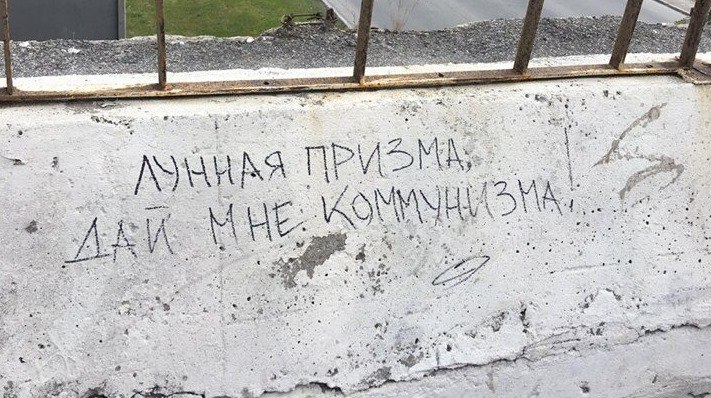 ЛУННАЯ ПРИЗМА,
ДАЙ МНЕ КОММУНИЗМА!